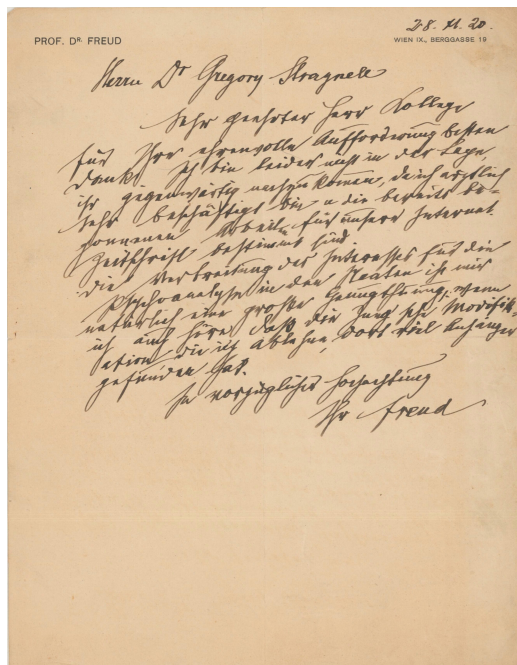 28. XI. 20.
PROF. DR. FREUD
WIEN IX., BERGGASSE 19
Herrn Dr Gregory Stragnell
Sehr geehrter Herr College
für Ihre ehrenvolle Aufforderung besten
Dank. Ich bin leider nicht in der Lage,
ihr gegenwärtig nachzukommen, da ich ärztlich
sehr beschäftigt bin u die bereits be-
gonnenen Arbeiten für unsere Internat.
Zeitschrift bestimmt sind.
Die Verbreitung des Interesses für die
Psychoanalyse in den Staaten ist mir
natürlich eine große Genugthuung, wenn
ich auch höre daß die Jung'sche Modifik-
ation, die ich ablehne, dort viel Anhänger
gefunden hat.
In vorzüglicher Hochachtung
Ihr Freud